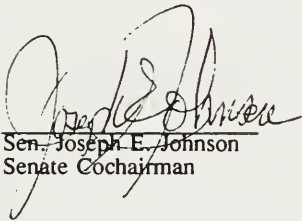 Joseph E. Johnson
Sen. Joseph E. Johnson
Senate Cochairman